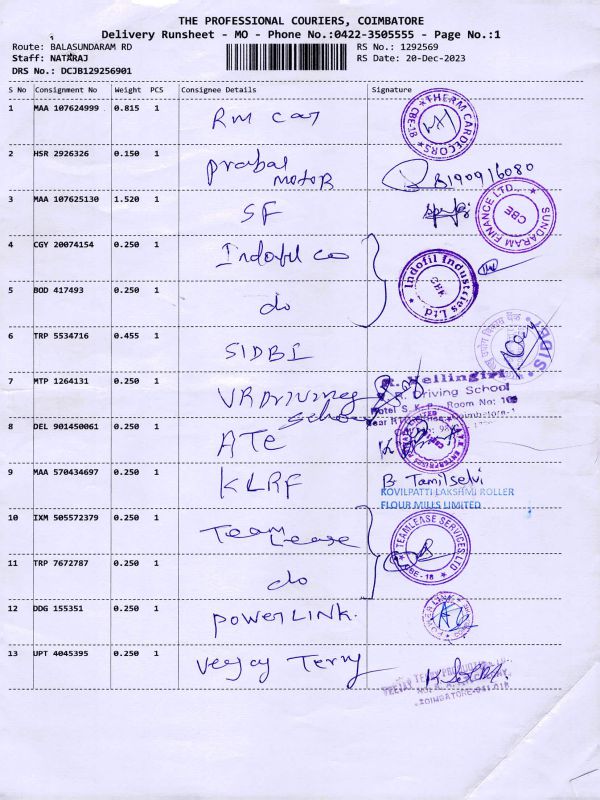 THE PROFESSIONAL COURIERS, COIMBATORE
Delivery Runsheet - MO - Phone No.:0422-3505555 - Page No.:1
Route: BALASUNDARAM RD
RS No.: 1292569
Staff: NATARAJ
RS Date: 20-Dec-2023
DRS No.: DCJB129256901
S No Consignment No Weight PCS Consignee Details Signature
1 MAA 107624999 0.815 1 Rm car
THERM CARDECORS
CBE-18
2 HSR 2926326 0.150 1 prabal
motor
8190916080
3 MAA 107625130 1.520 1 SF
SUNDARAM FINANCE LTD.,
CBE
4 CGY 20074154 0.250 1 Indofil co
Indofil Industries Ltd.
CBE
5 BOD 417493 0.250 1 do
6 TRP 5534716 0.455 1 SIDBI
SIDBI
7 MTP 1264131 0.250 1 VR Driving
School
Vellingiri
Driving School
Hotel S.K.P. Room No: 108
Near RTO Office Coimbatore-1
8 DEL 901450061 0.250 1 ATE
ENTERPRISES PRIVATE
9 MAA 570434697 0.250 1 KLRF
B. Tamilselvi
KOVILPATTI LAKSHMI ROLLER
FLOUR MILLS LIMITED
10 IXM 505572379 0.250 1 Team
Lease
TEAMLEASE SERVICES LTD
CBE - 18
11 TRP 7672787 0.250 1 do
12 DDG 155351 0.250 1 POWERLINK.
POWER LINK
13 UPT 4045395 0.250 1 Veejay Terry
VEEJAY TERRY PRODUCTS
COIMBATORE-641 018